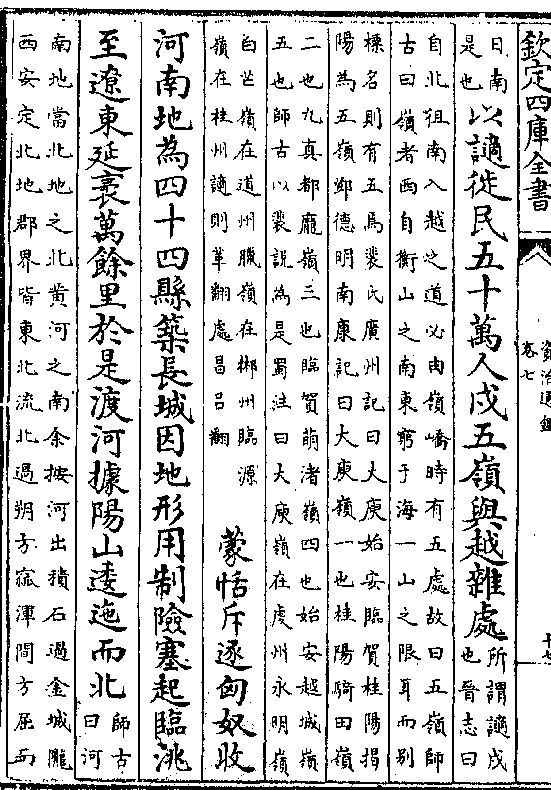 欽定四庫全書
資治通鑑
卷七
十七
日南
是也
以讁徙民五十萬人戍五嶺與越雜處
所謂讁戍
也晉志曰
自北徂南入越之道必由嶺嶠時有五處故曰五嶺師
古曰嶺者西自衡山之南東窮于海一山之限耳而别
標名則有五焉裴氏廣州記曰大庾始安臨賀桂陽揭
陽為五嶺鄧德明南康記曰大庾嶺一也桂陽騎田嶺
二也九真都龐嶺三也臨賀萌渚嶺四也始安越城嶺
五也師古以裴說為是蜀注曰大庾嶺在虔州永明嶺
白芒嶺在道州臘嶺在郴州臨源
嶺在桂州讁則革翻處昌吕翻
蒙恬斥逐匈奴收
河南地為四十四縣築長城因地形用制險塞起臨洮
至遼東延袤萬餘里於是渡河據陽山逶迤而北
師古
曰河
南地當北地之北黄河之南余按河出積石過金城隴
西安定北地郡界皆東北流北過朔方窳渾間方屈而